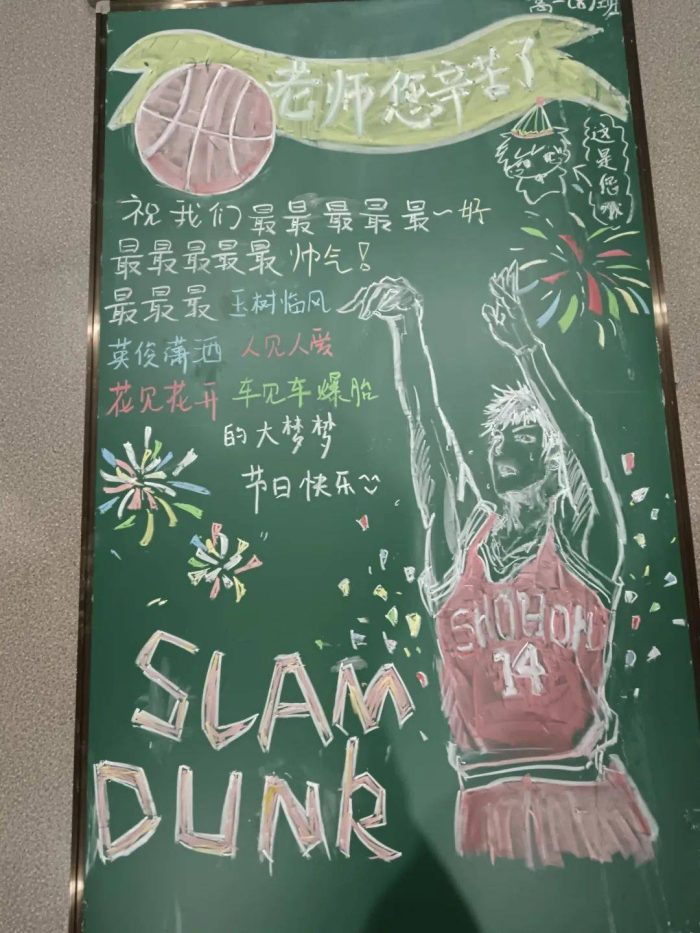 高一(8)班
老师您辛苦了
这是您哦
祝我们最最最最最~好
最最最最最帅气！
最最最玉树临风
英俊潇洒 人见人爱
花见花开 车见车爆胎
的大梦梦
节日快乐
SHOHOH
14
SLAM
DUNK